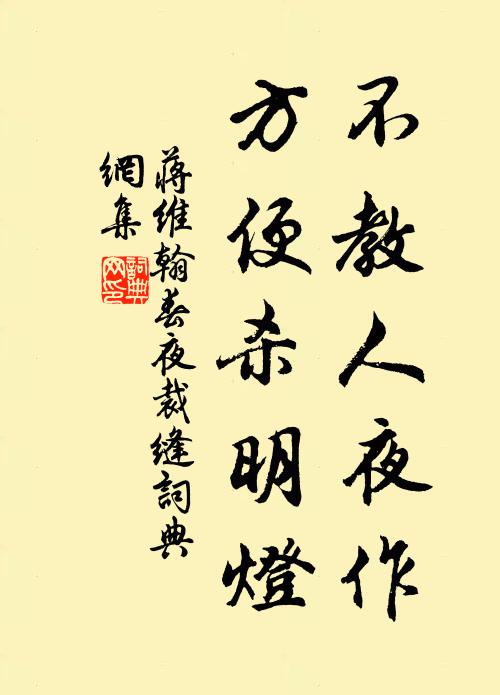 不教人夜作
方便杀明燈
蔣維翰春夜裁縫詞典
網集
詞典
网印